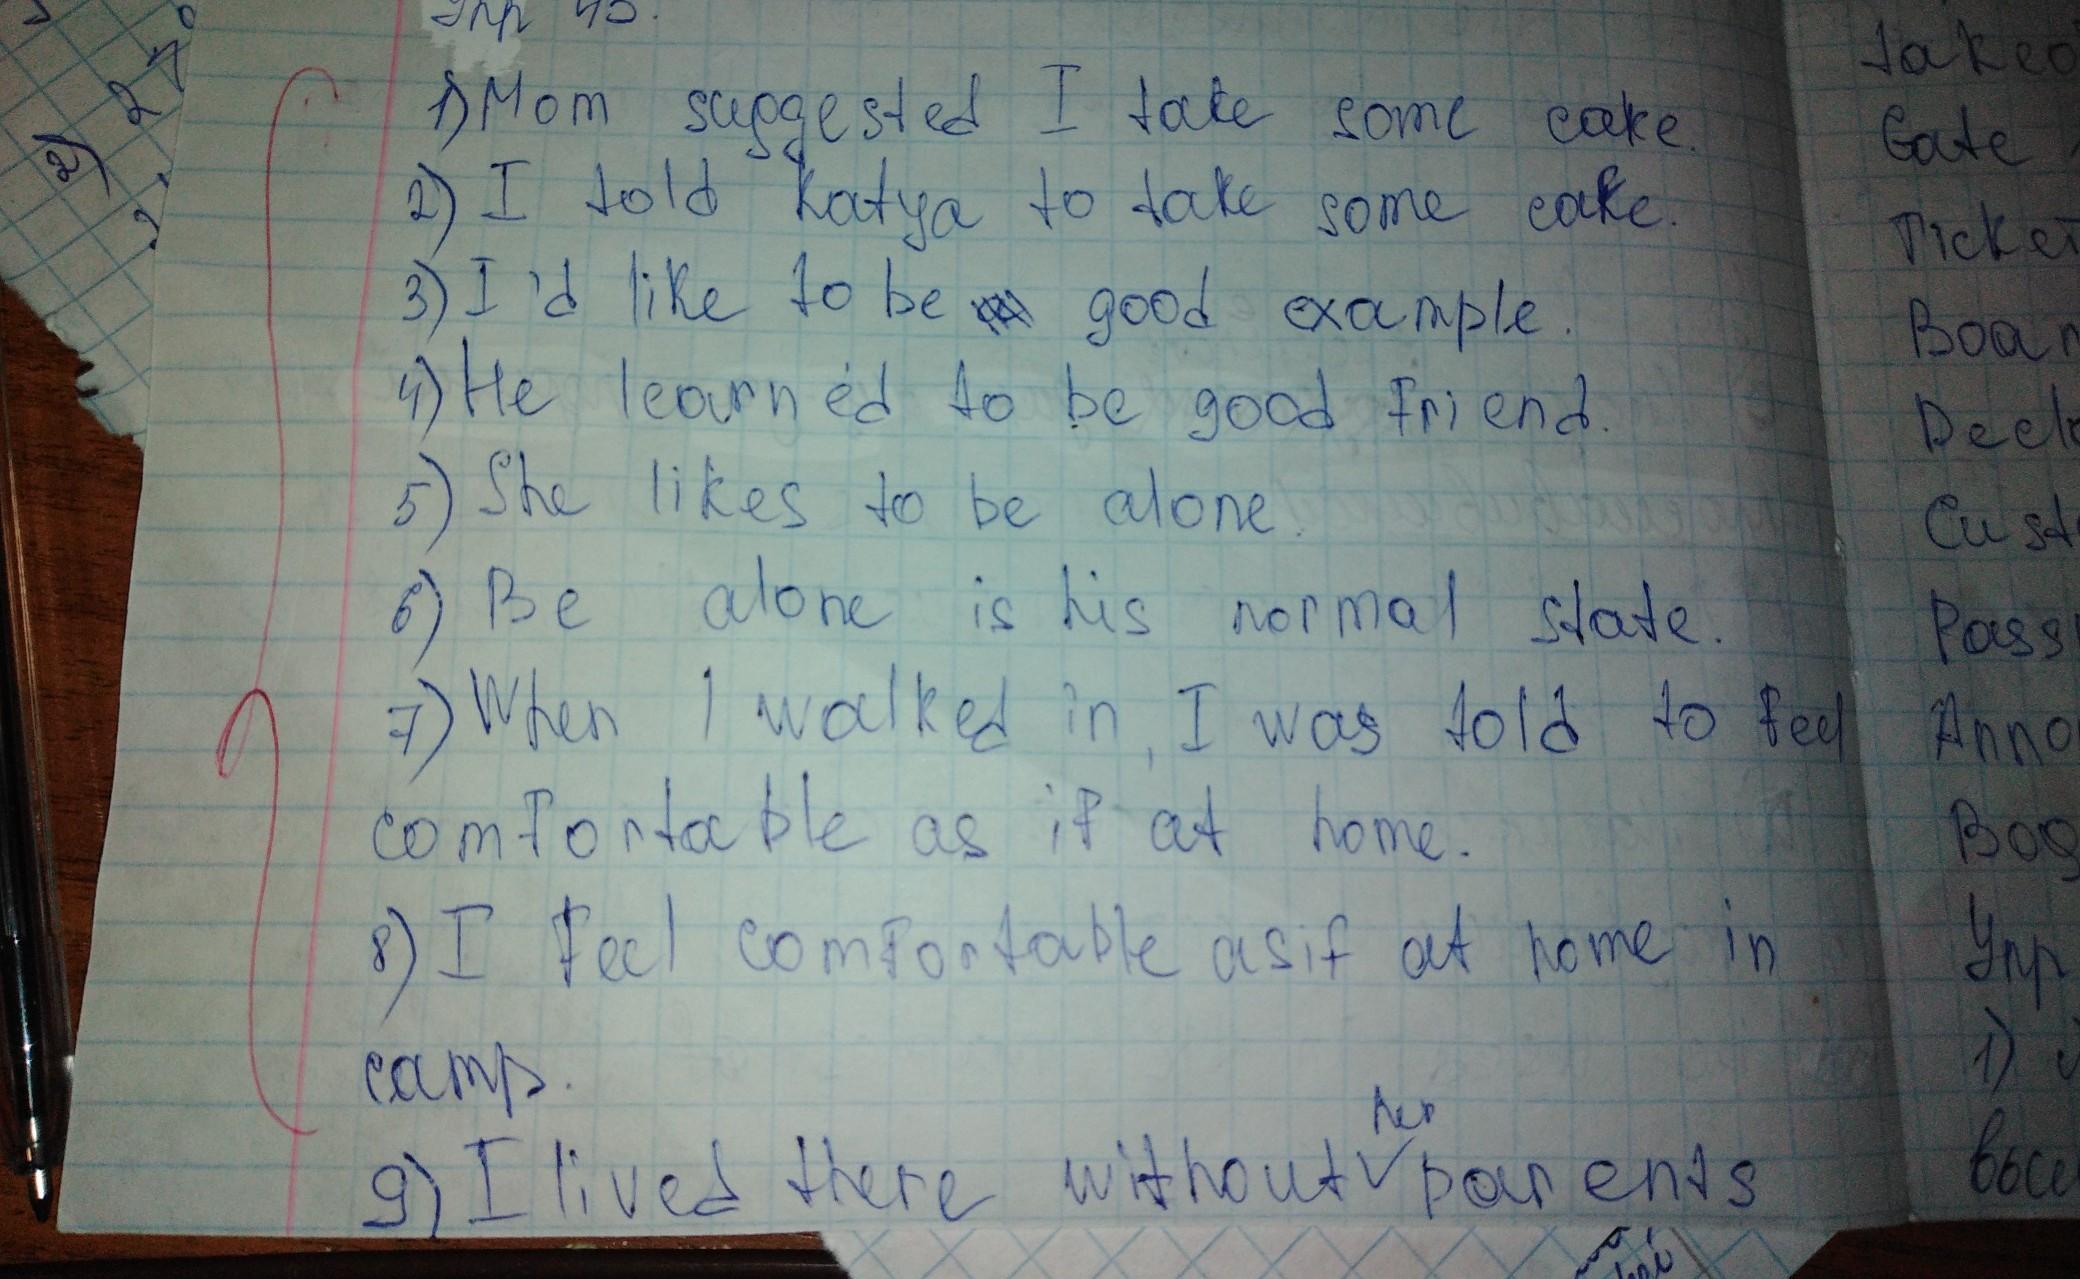 Упр
1) Mom suggested I take some cake.
2) I told Katya to take some cake.
3) I'd like to be good example.
4) He learned to be good friend.
5) She likes to be alone.
6) Be alone is his normal state.
7) When I walked in, I was told to feel
comfortable as if at home.
8) I feel comfortable as if at home in
camp.
her
9) I lived there without parents
2)
Gate
Ticket
Упр
1)